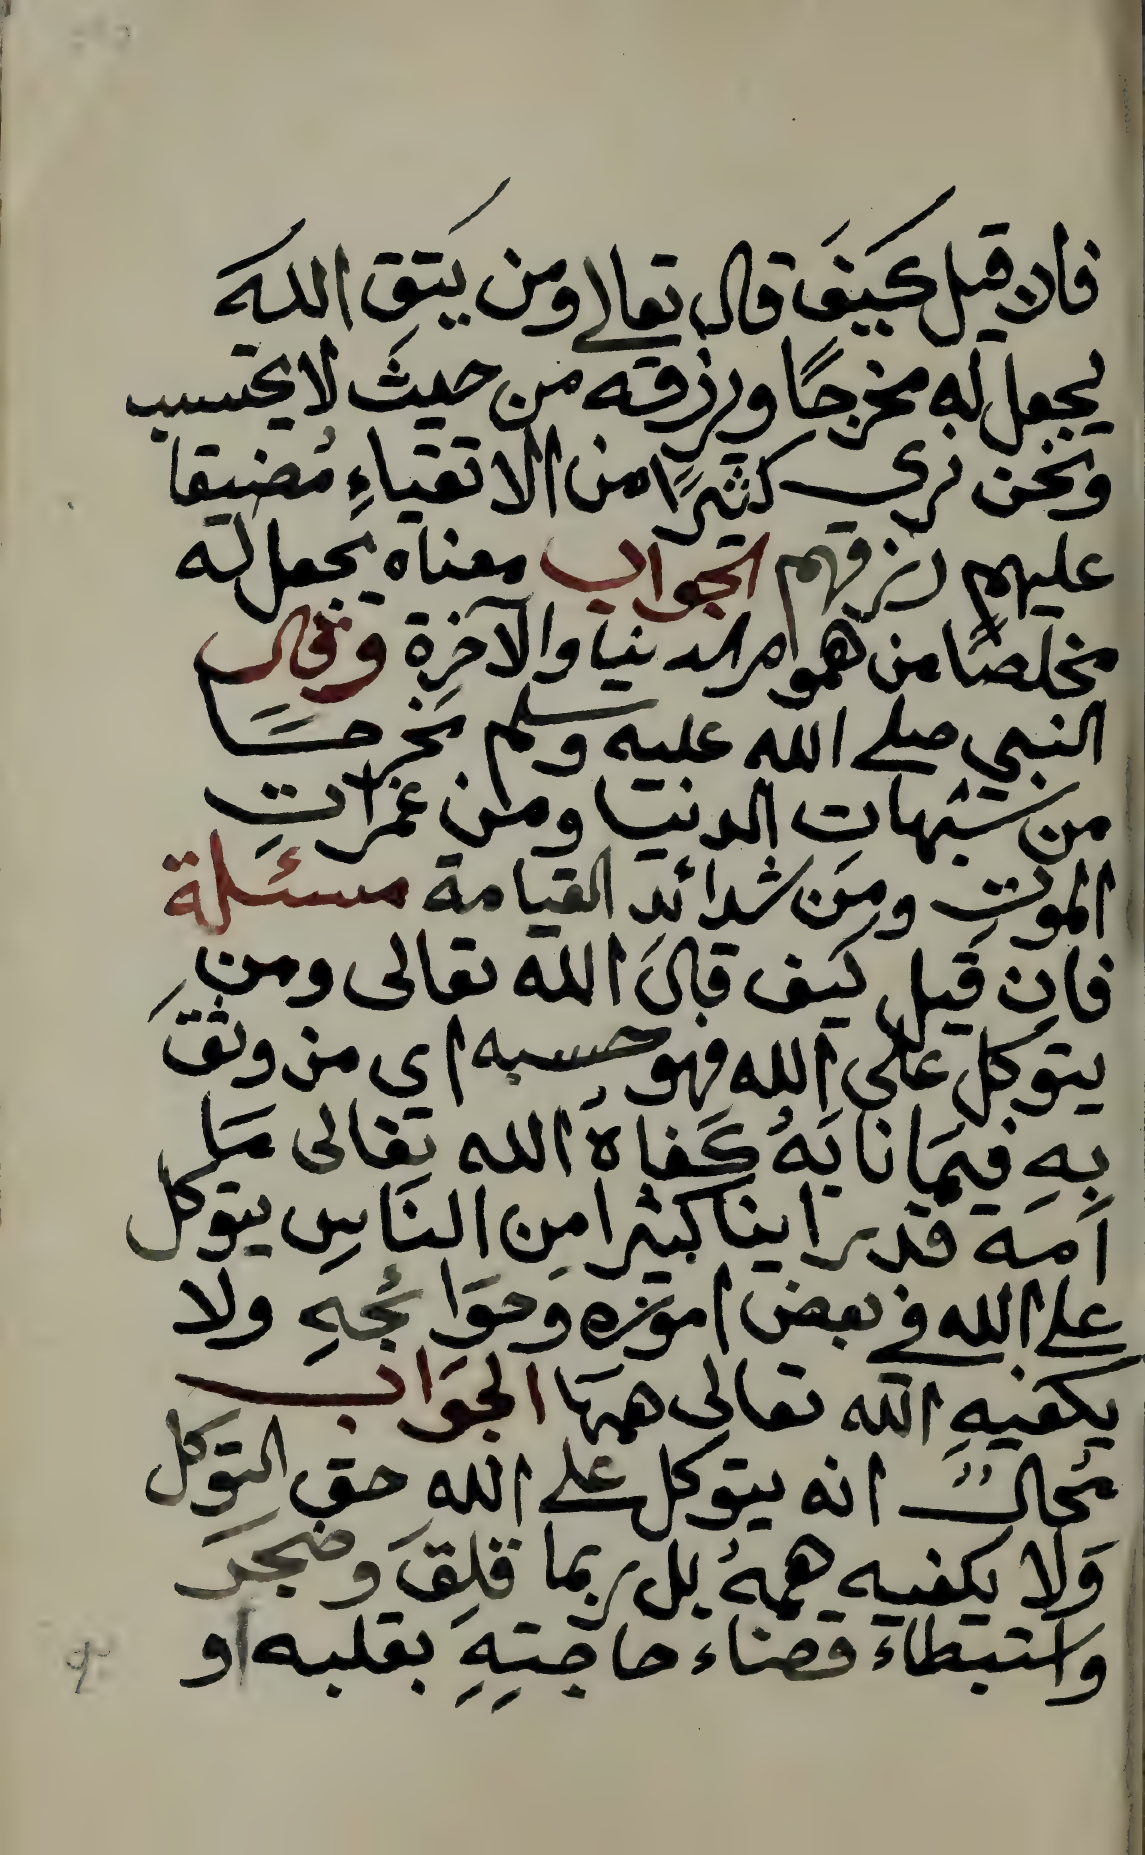 فان قيل كيفَ قال تعالى ومن يتقِ اللهَ
يجعل له مخرجًا ويرزقه من حيثُ لا يحتسب
ونحن نرى كثيرًا من الاتقياءِ مُضيقا
عليهم رزقهم الجواب معناه يجعل له
مخلصًا من هموم الدنيا والآخرة وقال
النبي صلى الله عليه وسلم مخرجًا
من شبهات الدنيا ومن غمراتِ
الموتِ ومِن شدائد القيامة مسئلة
فان قيل كيف قال الله تعالى ومن
يتوكل على الله فهو حسبه اي من وثقَ
بهِ فيمَا نابَهُ كفاهُ الله تعالى مَا
اَمه قد راينا كثيرا من الناسِ يتوكل
على الله في بعض امورِه وحوَائجهِ ولا
يكفيهِ الله تعالى همها الجوَاب
مُحالٌ انه يتوكل على الله حق التوكل
وَلا يكفيه همهُ بل ربما قلِقَ وضجرَ
واستبطاءَ قضاء حاجتهِ بقلبه او